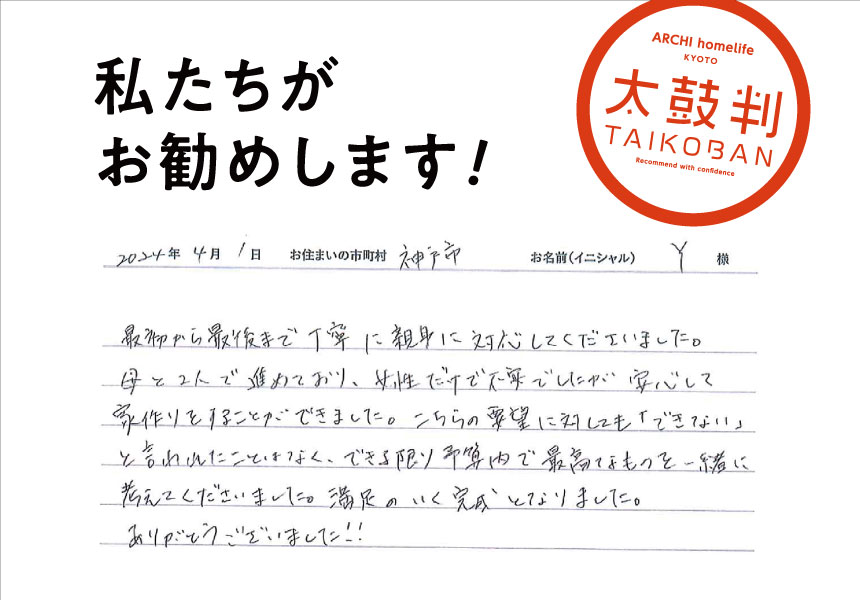 私たちが
お勧めします！
ARCHI homelife
KYOTO
太鼓判
TAIKOBAN
Recommend with confidence
2024年 4月 1日 お住まいの市町村 神戸市 お名前(イニシャル) Y 様
最初から最後まで丁寧に親身に対応してくださいました。
母と2人で進めており、女性だけで不安でしたが 安心して
家作りをすることができました。こちらの要望に対しても「できない」
と言われたことはなく、できる限り予算内で最高なものを一緒に
考えてくださいました。満足のいく完成となりました。
ありがとうございました!!